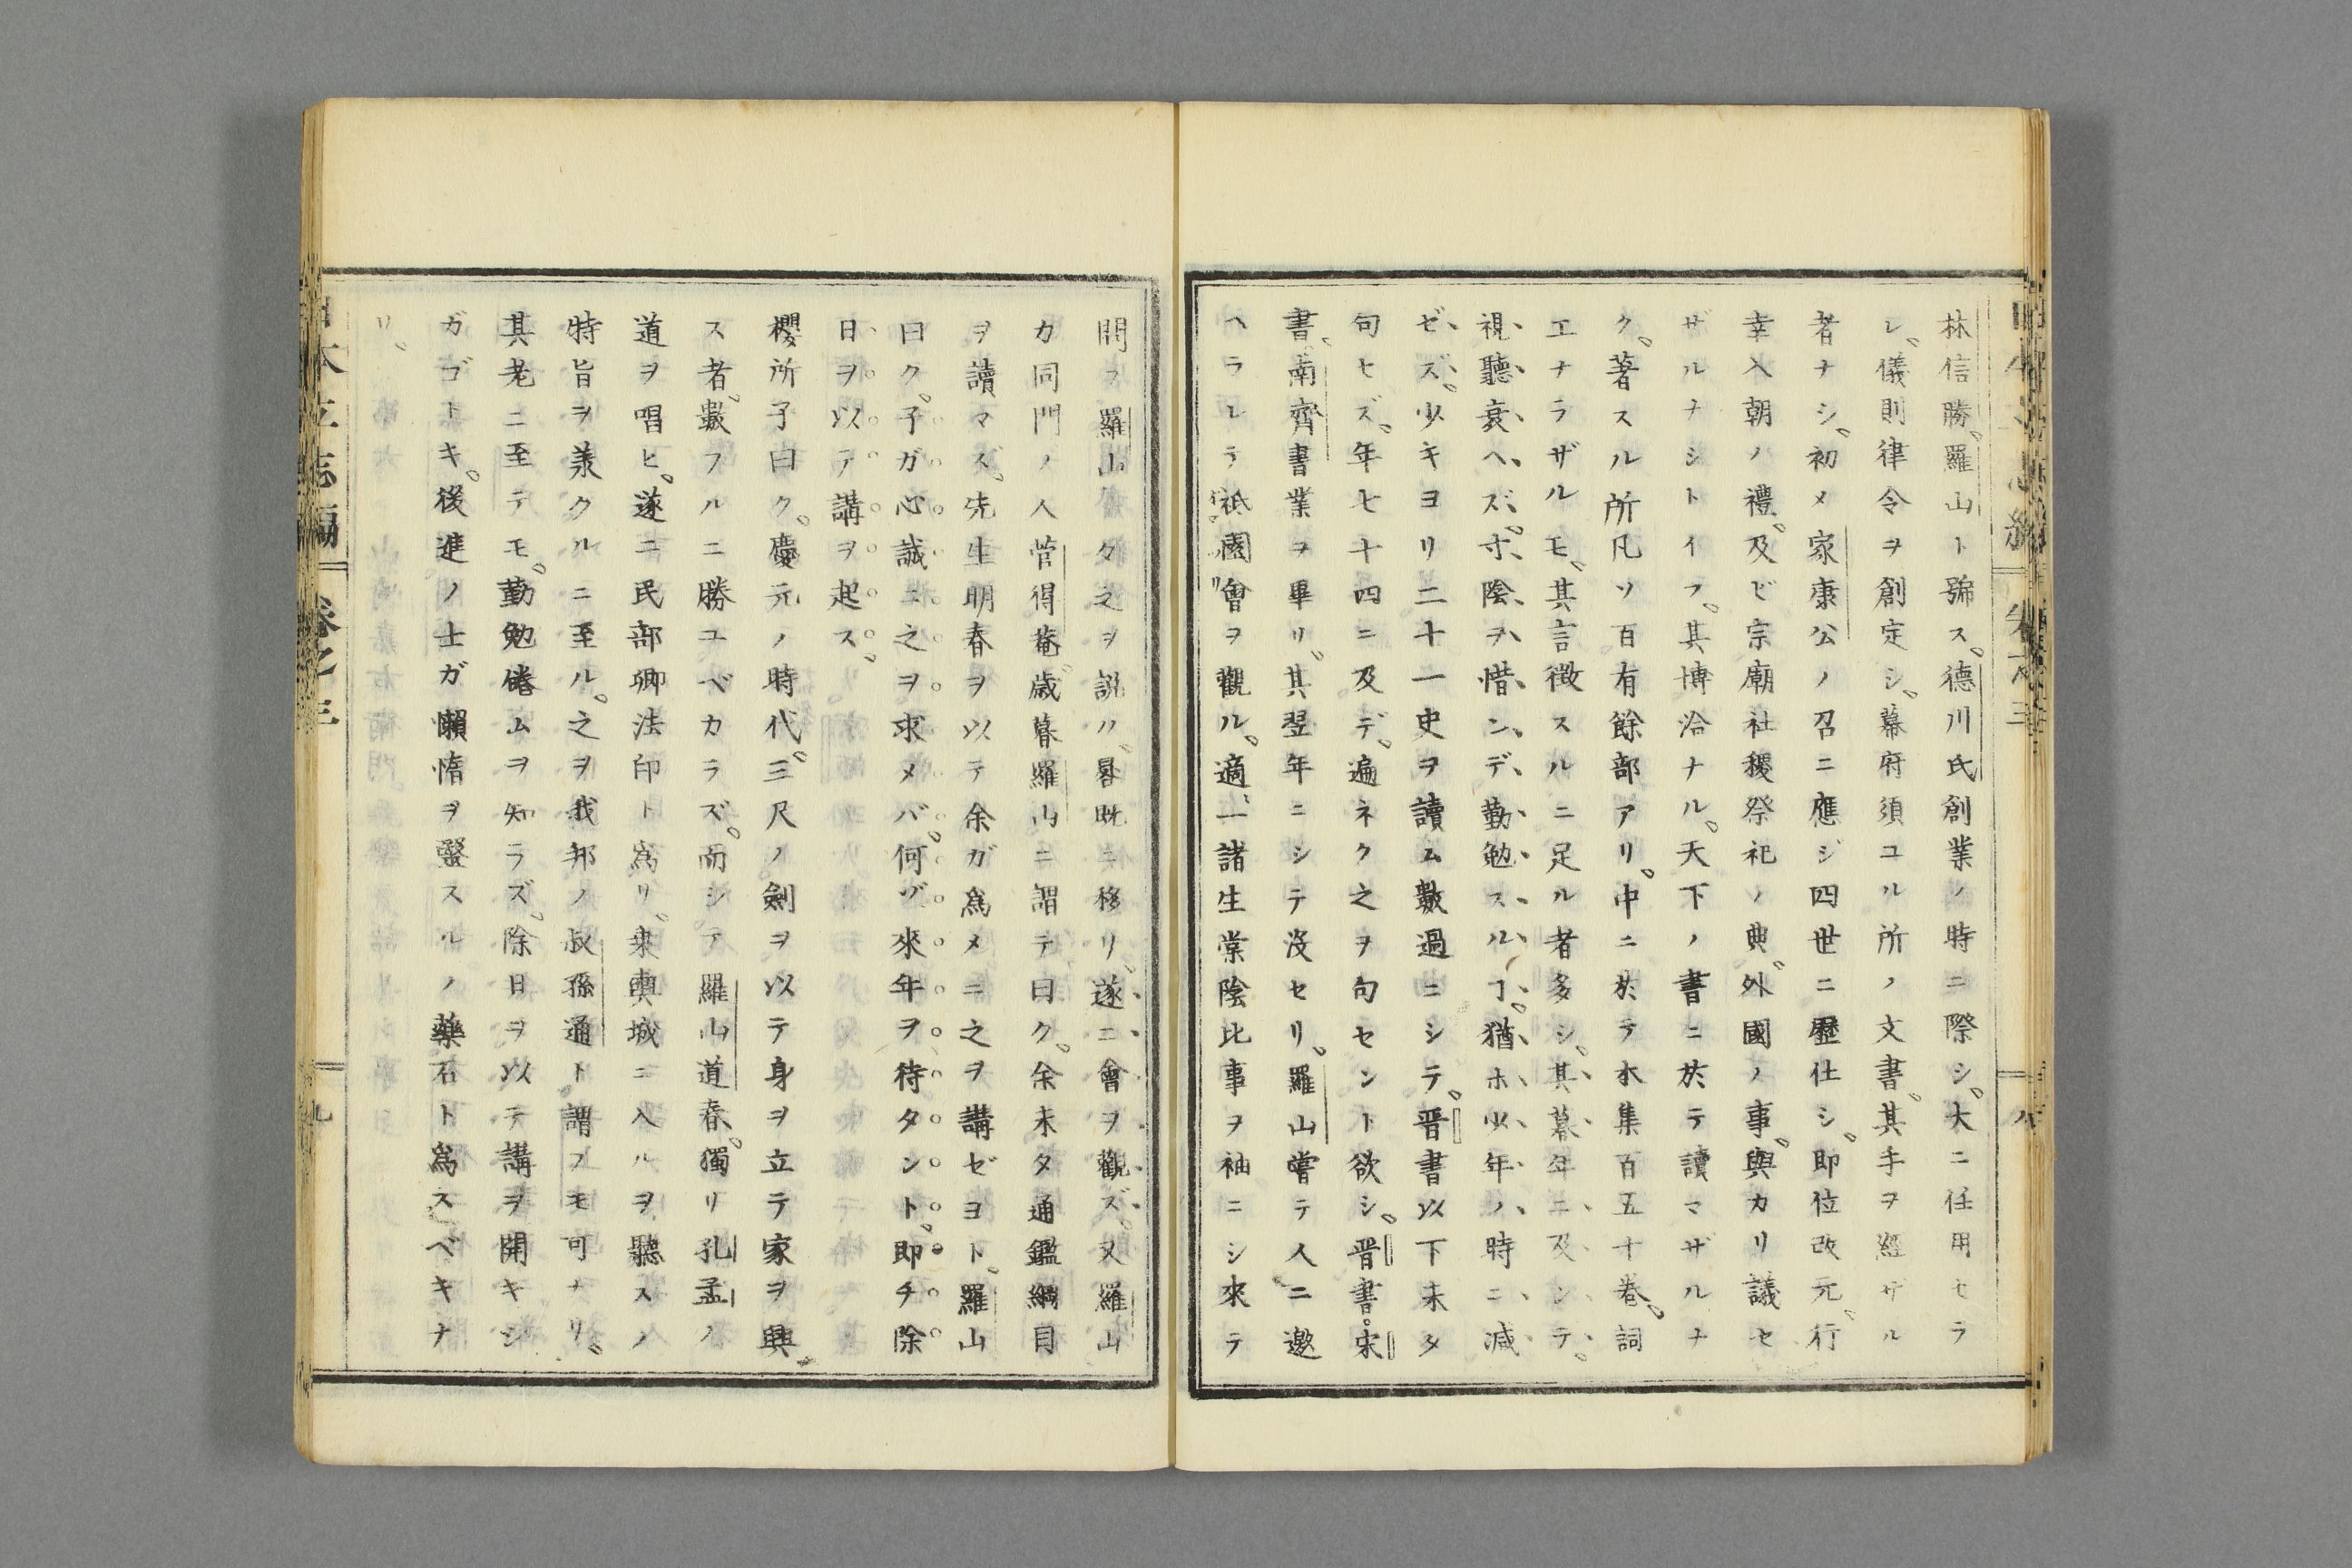 林信勝羅山ト號ス。德川氏創業ノ時ニ際シ。大ニ任用セラ
レ、儀則律令ヲ創定シ、幕府須ユル所ノ文書。其手ヲ經ザル
者ナシ。初メ家康公ノ召ニ應ジ四世ニ歷仕シ。即位改元、行
幸入朝ノ禮。及ビ宗廟社稷祭祀ノ典。外國ノ事。與カリ議セ
ザルナシトイフ。其博洽ナル。天下ノ書ニ於テ讀マザルナ
ク。著スル所凡ソ百有餘部アリ。中ニ於テ本集百五十卷。詞
エナラザルモ。其言徵スルニ足ル者多シ。其暮年ニ及ンデ。
視聽衰ヘズ。寸陰ヲ惜ンデ、勤勉スルヿ。猶ホ少年ノ時ニ減
ゼズ。少キヨリ二十一史ヲ讀ム數過ニシテ。晋書以下未タ
句セズ。年七十四ニ及デ。遍ネク之ヲ句セント欲シ。晋書。宋
書。南齊書業ヲ畢リ。其翌年ニシテ沒セリ。羅山嘗テ人ニ邀
ヘラレテ祇園會ヲ觀ル。適一諸生棠陰比事ヲ袖ニシ來テ
問フ羅山タ之ヲ說ク。晷既ニ移リ。遂ニ會ヲ觀ズ。又羅山
カ同門ノ人菅得菴。歲暮羅山ニ謂テ曰ク。余未タ通鑑綱目
ヲ讀マズ。先生明春ヲ以テ余ガ爲メニ之ヲ講ゼヨト。羅山
曰ク。子ガ心誠ニ之ヲ求メバ。何ゾ來年ヲ待タント。即チ除
日ヲ以テ講ヲ起ス。
櫻所子曰ク。慶元ノ時代。三尺ノ劍ヲ以テ身ヲ立テ家ヲ興
ス者。數フルニ勝ユベカラズ。而シテ羅山道春。獨リ孔孟ノ
道ヲ唱ヒ。遂ニ民部卿法印ト爲リ。乘輿城ニ入ルヲ聽スノ
特旨ヲ羕クルニ至ル。之ヲ我邦ノ叔孫通ト。謂フモ可ナリ。
其老ニ至テモ。勤勉倦ムヲ知ラズ。除日ヲ以テ講ヲ開キシ
ガゴトキ。後進ノ士ガ懶惰ヲ醫スルノ藥石ト爲スベキナ
リ。